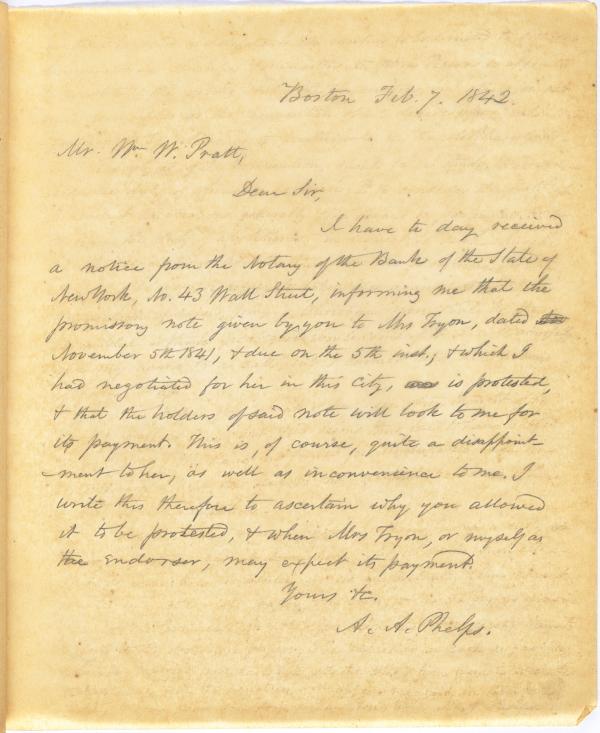 Boston Feb. 7. 1842.
Mr. Wm W. Pratt,
Dear Sir,
I have to day received
a notice from the Notary of the Bank of the State of
New York, No. 43 Wall Street, informing me that the
promissory note given by you to Mrs Tryon, dated
November 5th 1841, & due on the 5th inst., & which I
had negotiated for her in this city, is protested,
& that the holders of said note will look to me for
its payment. This is, of course, quite a disappoint-
ment to her, as well as inconvenience to me. I
write this therefore to ascertain why you allowed
it to be protested, & when Mrs Tryon, or myself as
the endorser, may expect its payment.
Yours &c.
A. A. Phelps.